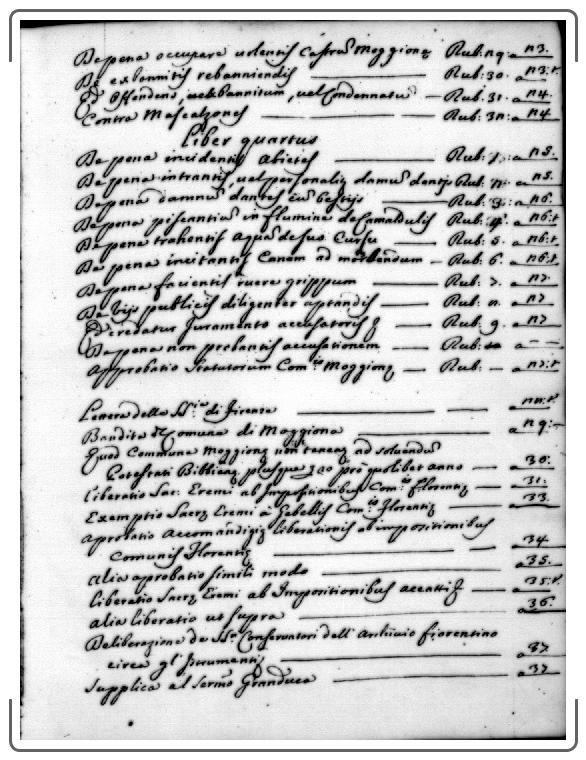 De pena occupare volentis Castrũ Moggionę Rub: 29. a 23.
De exbannitis rebanniendis Rub: 30. a 23.t.
Offendens, vel Bannitum, vel Condennatũ Rub. 31. a 24.
Contra Mascalzones Rub: 32: a 24
Liber quartus
De pena incidentis Abietes Rub: 1. a 25.
De pena intrantis, vel personaliʒ damũ dantis Rub. 2. a 25.
De pena damnũ dantis cũ bestijs Rub. 3: a 26.
De pena piscantiũ in flumine de Camaldulis Rub: 4. a 26.t
De pena trahentis aquã de suo Cursu Rub: 5. a 26.t
De pena incitantis Canem ad mordendum Rub: 6. a 26.t.
De pena facientis ruere grippum Rub: 7. a 27.
De Vijs publicis diligenter aptandis Rub: 8. a 27
credatur Juramento accusatoris Rub: 9. a 27
De pena non probantis accusationem Rub: 10 a
Approbatio Statutorum Com.is Moggionę Rub: a 27.t
Lettera della di Firenze a 28.t.
Bandita Comune di Moggiona a 29.
Quod Commune Moggionę nõ teneaʒ ad solvendũ
Potestati Bibbienę plusque 20 pro quolibet anno a 30.
Liberatio Sac: Eremi ab Impositionibus Com.is Florentię a 31.
Exemptio Sacrę Eremi à Gabellis Com.is Florentię a 33.
Aprobatio Accomandigię liberationis ab impositionibus
Comunis Florentię a 34
Alia aprobatio simili modo a 35.
Liberatio Sacrę Eremi ab Impositionibus a 35.t.
Alia liberatio ut supra a 36.
Deliberazione de SS.ri Conservatori dell' Archivio fiorentino
circa gl' Istrumenti a 37
Supplica al Sermõ Granduca a 37